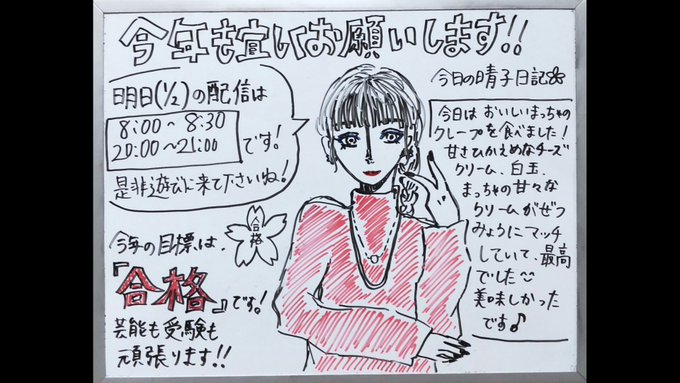 今年も宜しくお願いします!!
明日(1/2)の配信は
8:00〜8:30
20:00〜21:00
です!
是非遊びに来て下さいね!
合格
今年の目標は、
『合格』です!
芸能も受験も
頑張ります!!
今日の晴子日記
今日はおいしいまっちゃの
クレープを食べました!
甘さひかえめなチーズ
クリーム、白玉、
まっちゃの甘々な
クリームがぜつ
みょうにマッチ
していて、最高
でした
美味しかった
です♪